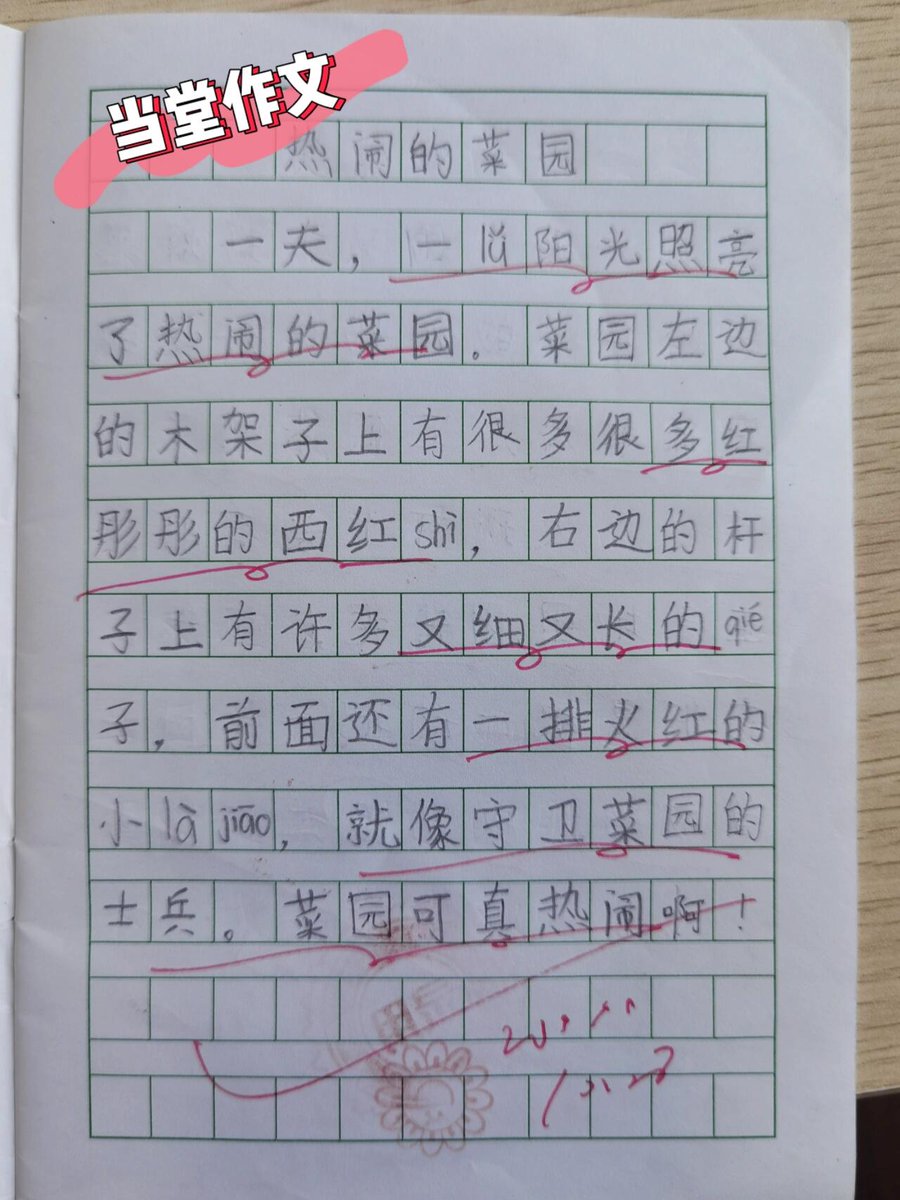 当堂作文
热闹的菜园
一天，一lǚ阳光照亮
了热闹的菜园。菜园左边
的木架子上有很多很多红
彤彤的西红shì，右边的杆
子上有许多又细又长的qié
子，前面还有一排火红的
小là jiāo，就像守卫菜园的
士兵。菜园可真热闹啊！